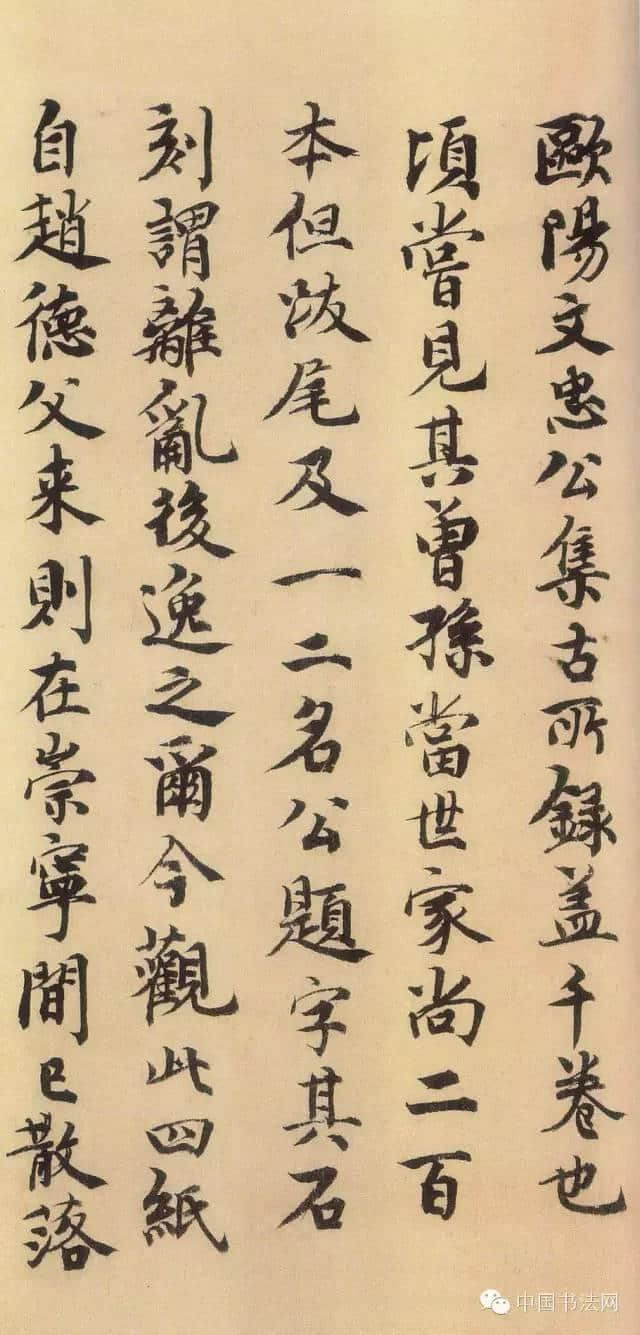 歐陽文忠公集古所録盖千卷也
頃嘗見其曽孫當世家尚二百
本但跋尾及一二名公題字其石
刻謂離亂後逸之爾今觀此四紙
自趙德父来則在崇寧間已散落
中国书法网